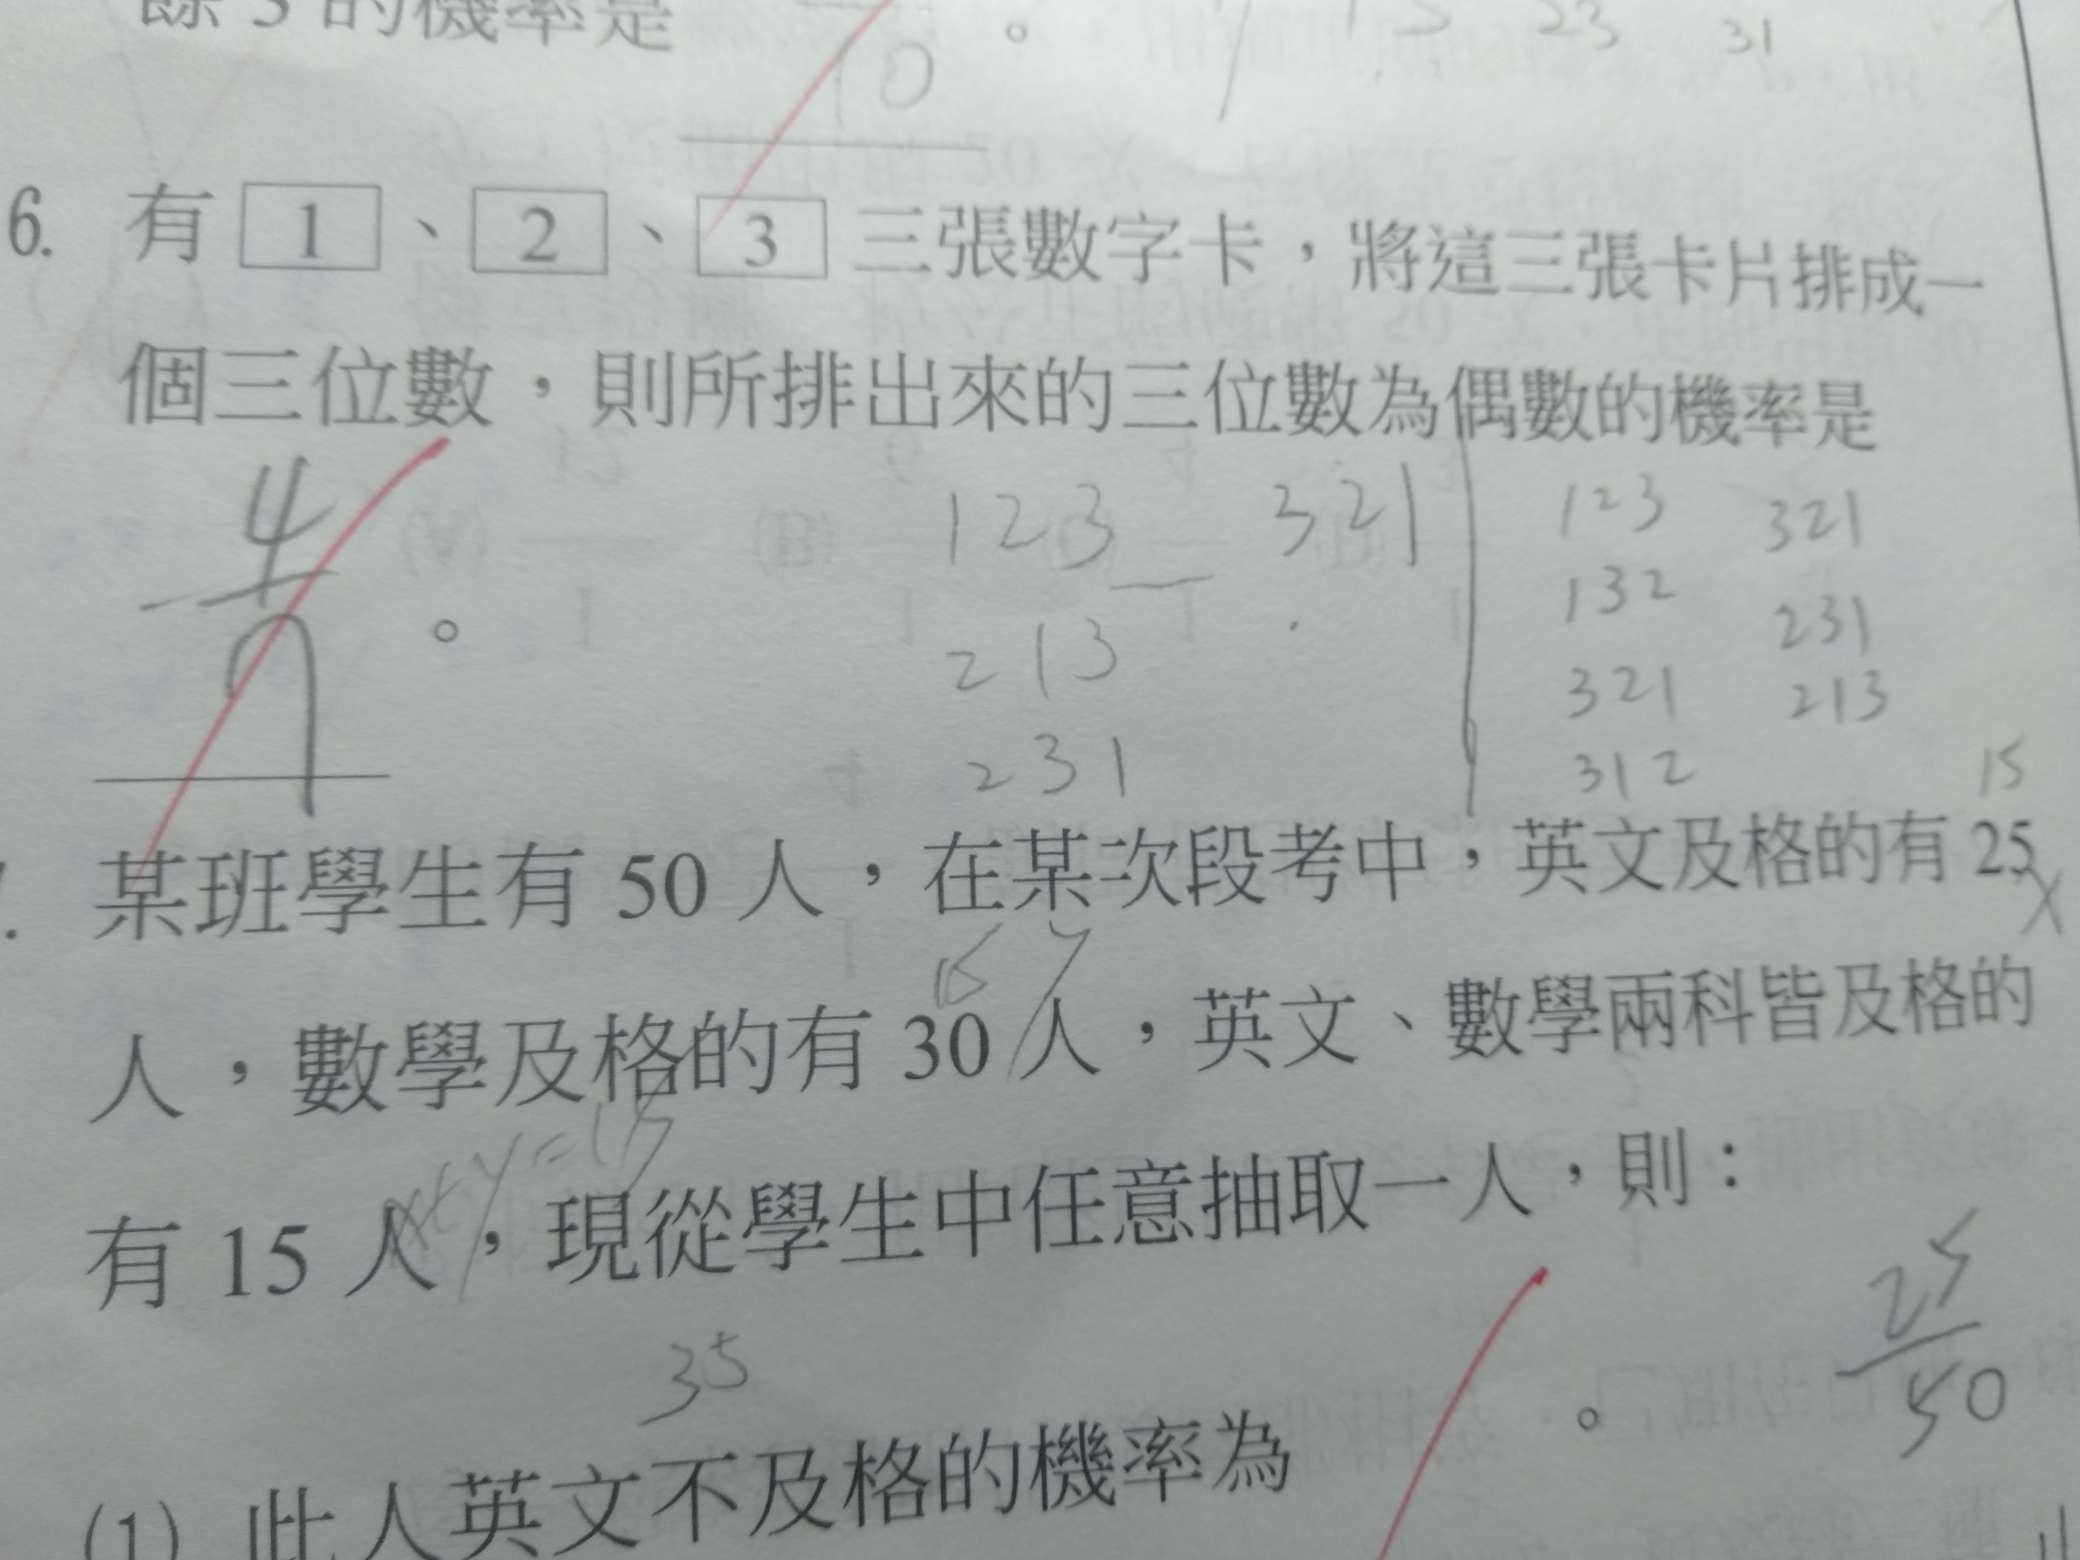 餘 3 的機率是 10 。 23 31
6. 有 1 、 2 、 3 三張數字卡，將這三張卡片排成一
個三位數，則所排出來的三位數為偶數的機率是
4/7 。
123 321 123 321
213 132 231
231 321 213
312 15
某班學生有 50 人，在某次段考中，英文及格的有 25
x
15 y
人，數學及格的有 30 人，英文、數學兩科皆及格的
x+y=15
有 15 人，現從學生中任意抽取一人，則：
35 25/50
(1) 此人英文不及格的機率為 。